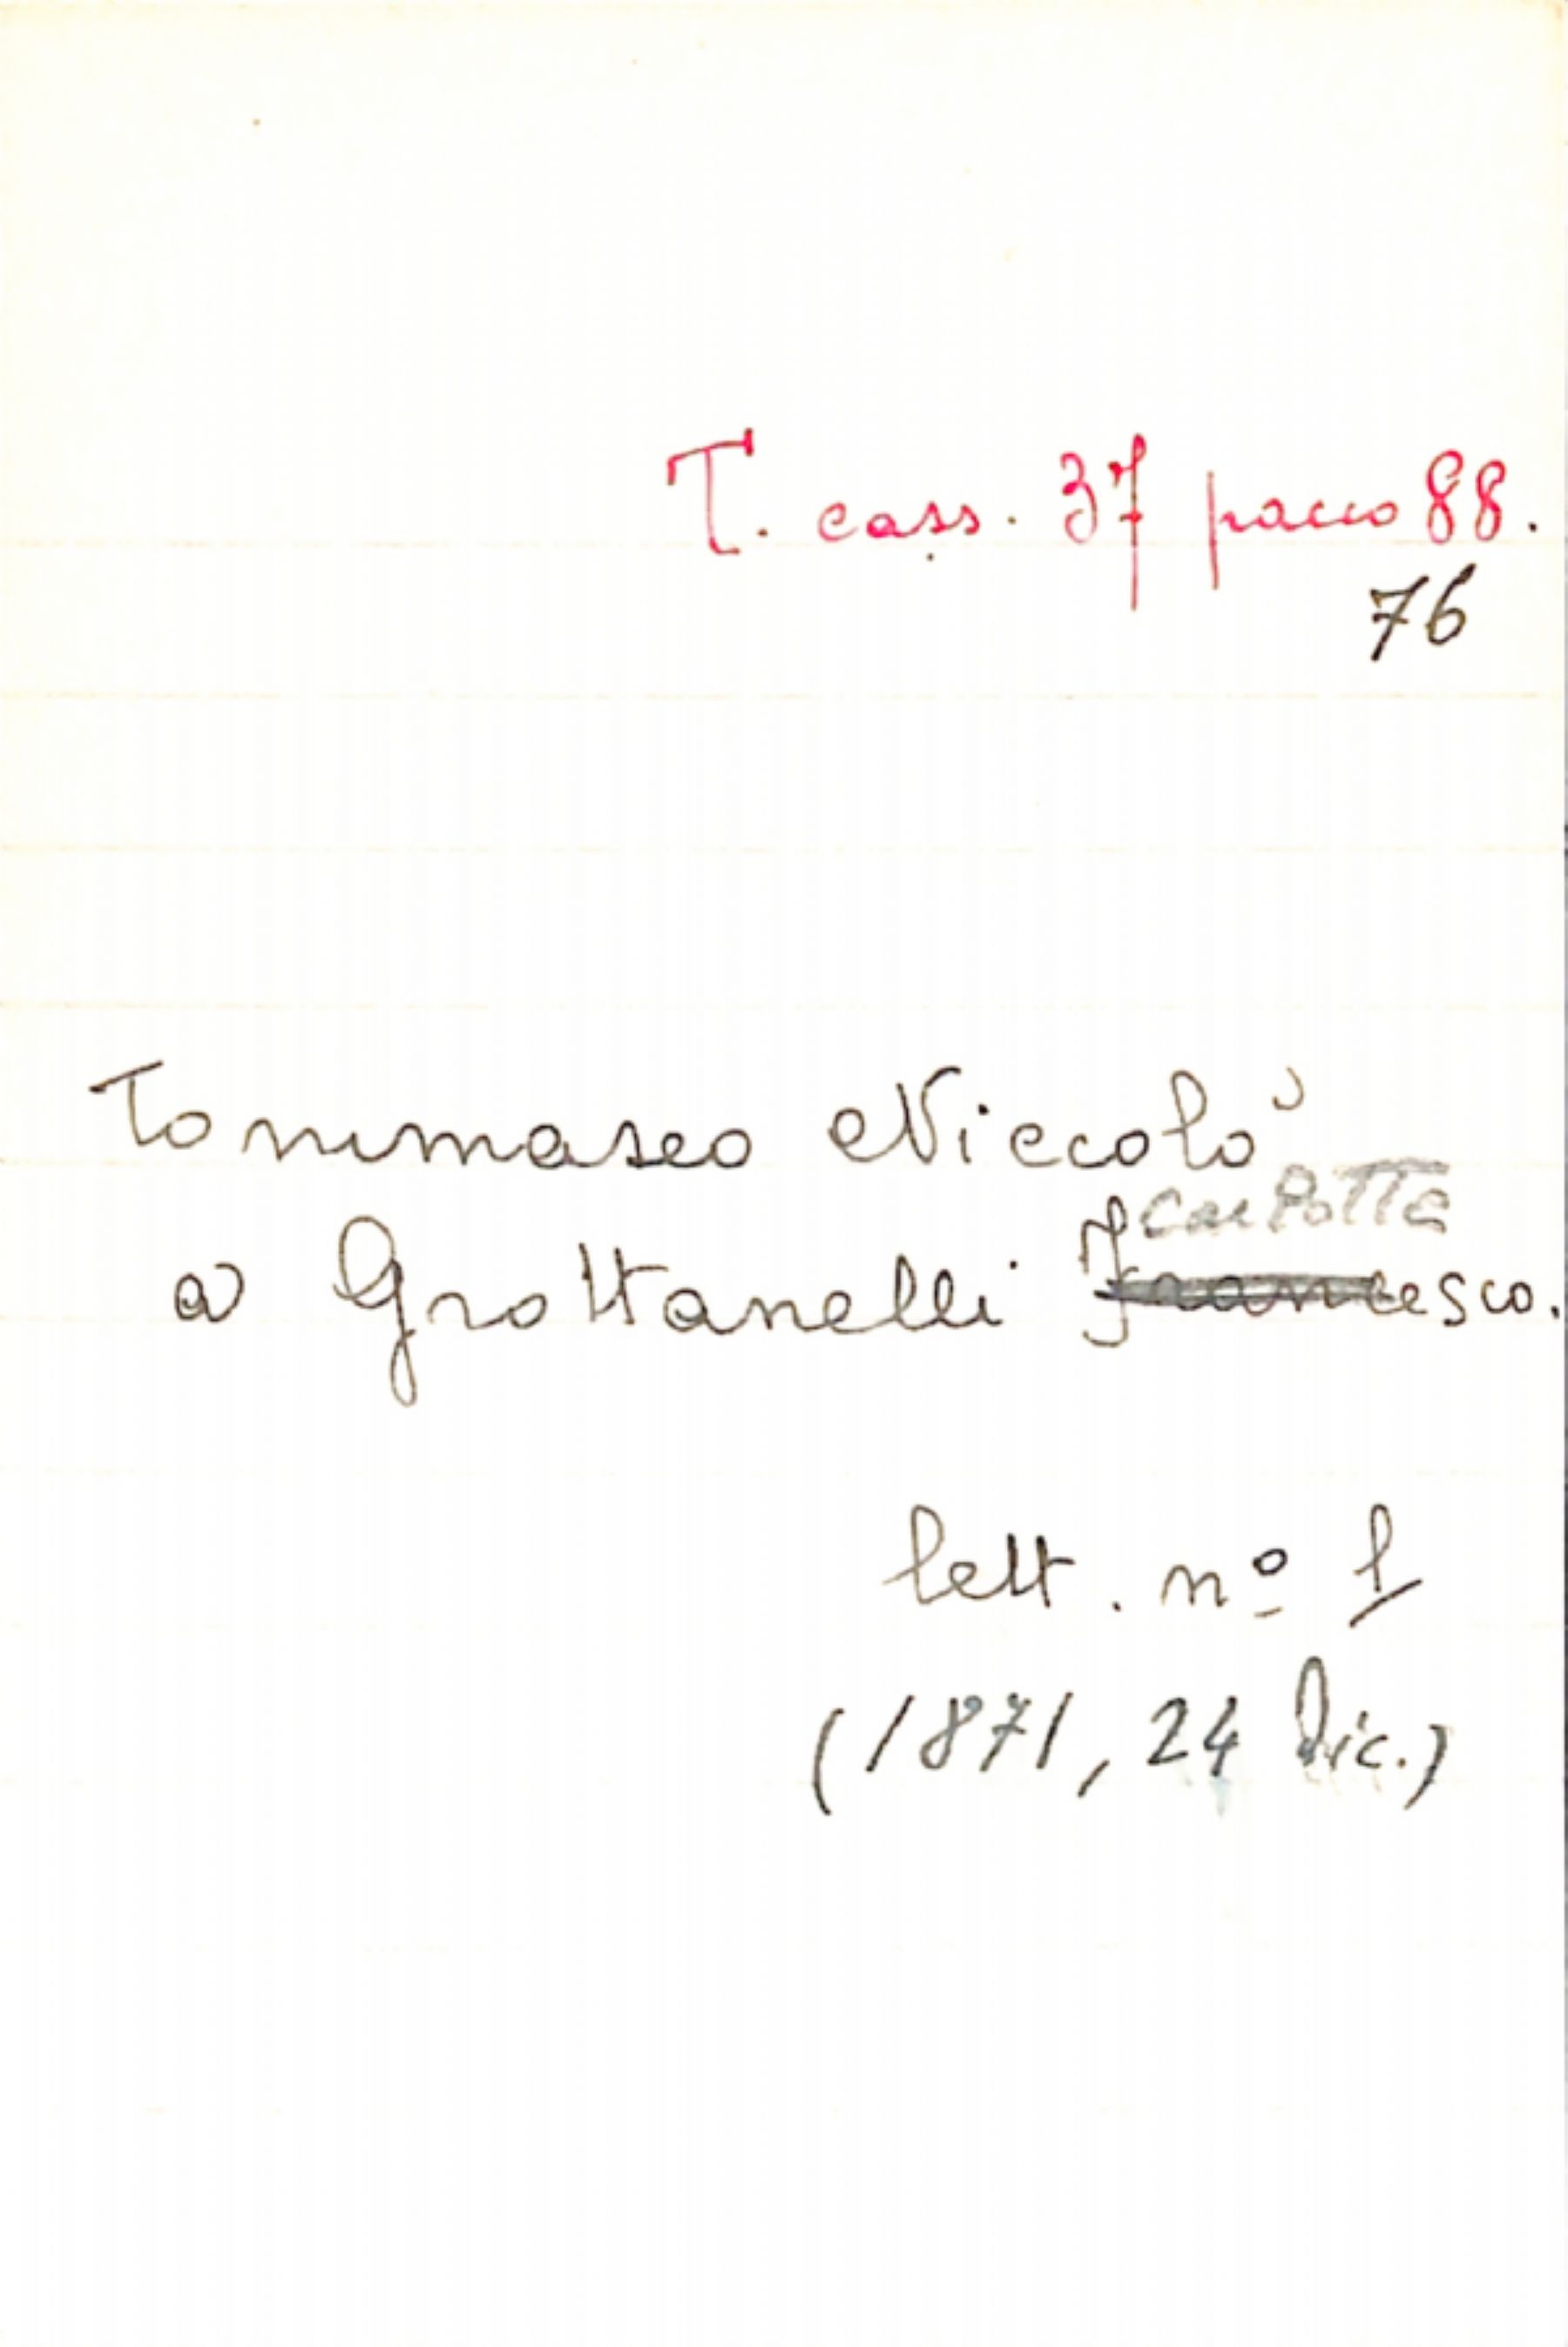 T. cass. 37 pacco 88.
76
Tommaseo Niccolò
Carlotta
a Grottanelli Francesco.
lett. nº 1
(1871, 24 Dic.)